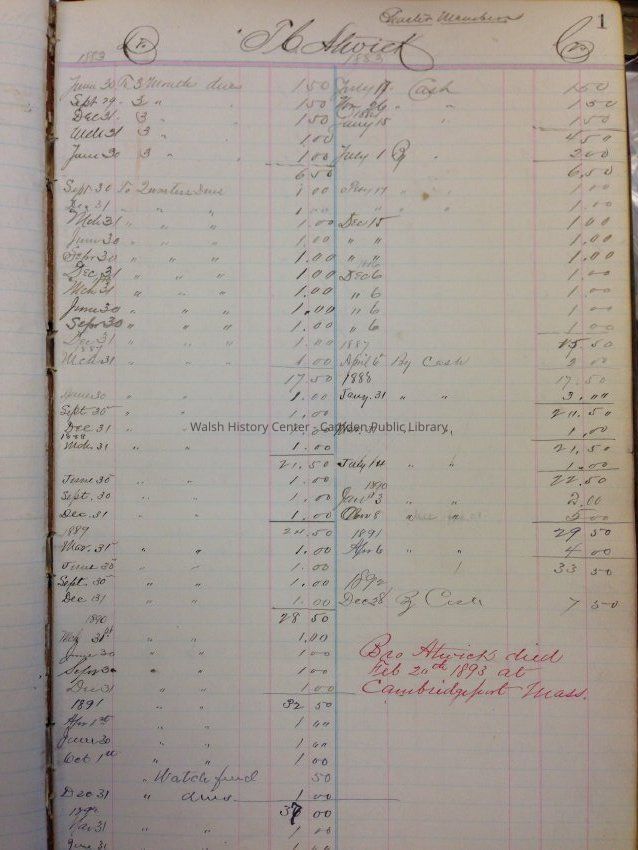 Charter Members 1
To T C Atwick Cr
1883 1883
June 30 To 3 Month dues 1 50 July 17 Cash 1 50
Sept 29 " 3 " " 1 50 Nov 26 " " 1 50
Dec 31 " 3 " " 1 50 Jany 15 " 1 50
Mch 31 " 3 " " 1.00 4 50
June 30 3 " " 1 00 July 1 By " 2 00
6 50 6 50
Sept 30 To Quarters Dues 1 00 " " 1.00
Dec 31 " " " 1 00 " " 1.00
Mch 31 " " " 1.00 Dec 15 1 00
June 30 " " " 1.00 " " 1.00
Sepr 30 " " " 1.00 " " 1.00
Dec 31 " " " 1 00 Dec 6 1.00
Mch 31 " " " 1.00 " 6 1.00
June 30 " " " 1.00 " 6 1.00
Sepr 30 " " " 1.00 " 6 1 00
Dec 31 " " " 1.00 1887 15 50
Mch 31 " " " 1 00 April 6 By Cash 2 00
17.50 1888 17.50
June 30 " " 1.00 Jany. 31 " " 3.00
Sept 30 " " 1.00 20.50
Dec 31 " " 1.00 " 31 " " 1.00
1888
Mch. 31 " " 1.00 21.50
21.50 July 14 " " 1.00
June 30 " " 1.00 1890 22.50
Sept. 30 " " 1.00 Jan 3 " " 2.00
Dec. 31 " " 1.00 Nov 8 " " 5.00
1889 24.50 1891 29 50
Mar. 31 " " 1.00 Apr 6 " " 4 00
June 30 " " 1.00 33 50
Sept. 30 " " 1.00 1892
Dec 31 " " 1.00 Dec 28 By Cash 7 50
1890 28 50
Mch 31st " " 1.00
June 30 " " 1 00
Sepr 30 " " 1 00
Dec 31 " " 1 00
1891 32 50
Apr 1st " " 1 00
June 30 " " 1 00
Oct 1st " " 1 00
" Watch fund 50
Dec 31 " dues 1 00
1892 37 00
Mar 31 " " 1 00
June 31 " " 1 00
Bro Atwick died
Feb 20th 1893 at
Cambridgeport Mass.
Walsh History Center - Camden Public Library